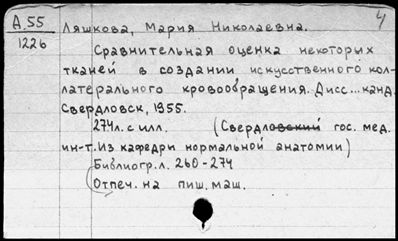 А.55 Ляшкова, Мария Николаевна. 4
1226
Сравнительная оценка некоторых
тканей в создании искусственного кол-
латерального кровообращения. Дисс... канд.
Свердловск, 1955.
274л. с илл. (Свердловский гос. мед.
ин-т. Из кафедри нормальной анатомии)
Библиогр. л. 260-274
(Отпеч. на пиш. маш.